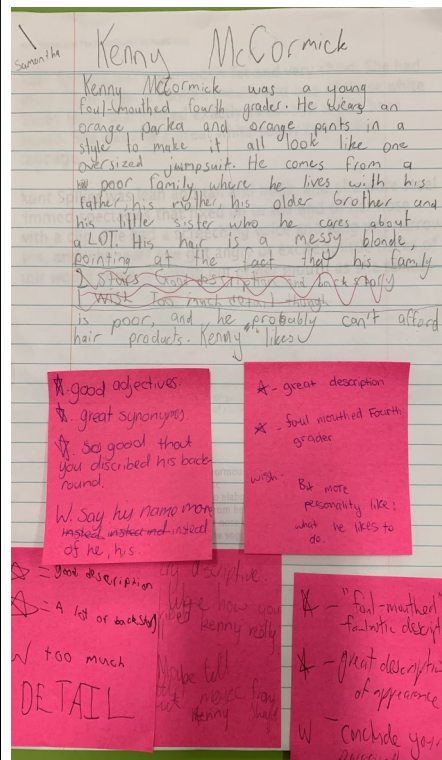 Samantha
Kenny McCormick
Kenny McCormick was a young
foul-mouthed fourth grader. He wears an
orange parka and orange pants in a
style to make it all look like one
oversized jumpsuit. He comes from a
poor family where he lives with his
father his mother, his older brother and
his little sister who he cares about
a LOT. His hair is a messy blonde,
pointing at the fact that his family
2 stars Good description and backstory
1 wish Too much detail though
is poor, and he probably can't afford
hair products. Kenny likes
good adjectives.
great synonyms
so good that
you discribed his back-
round.
W. Say his name more
insted insted ind instead
of he, his.
- great description
- foul mouthed Fourth
grader
wish-
Bit more
personality like:
what he likes to
do.
= good description
= A lot of backstory
W too much
DETAIL
discriptive.
how you
Kenny really
Maybe tell
more from
Kenny
- "foul-mouthed"
- great descripti
of appearance
W - conclude your